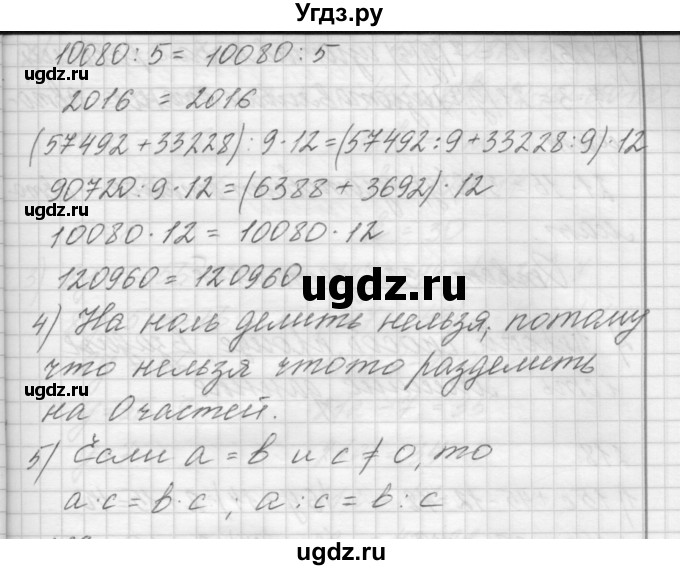 Угдз.ру
10080 : 5 = 10080 : 5
ugdz.ru
2016 = 2016
(57492 + 33228) : 9 · 12 = (57492 : 9 + 33228 : 9) · 12
90720 : 9 · 12 = (6388 + 3692) · 12
ugdz.ru
10080 · 12 = 10080 · 12
120960 = 120960
ugdz.ru
4) На ноль делить нельзя, потому
что нельзя чтото разделить
ugdz.ru
на 0 частей.
5) Если a = b и c ≠ 0, то
a · c = b · c ; a : c = b : c
ugdz.ru
ugdz.ru